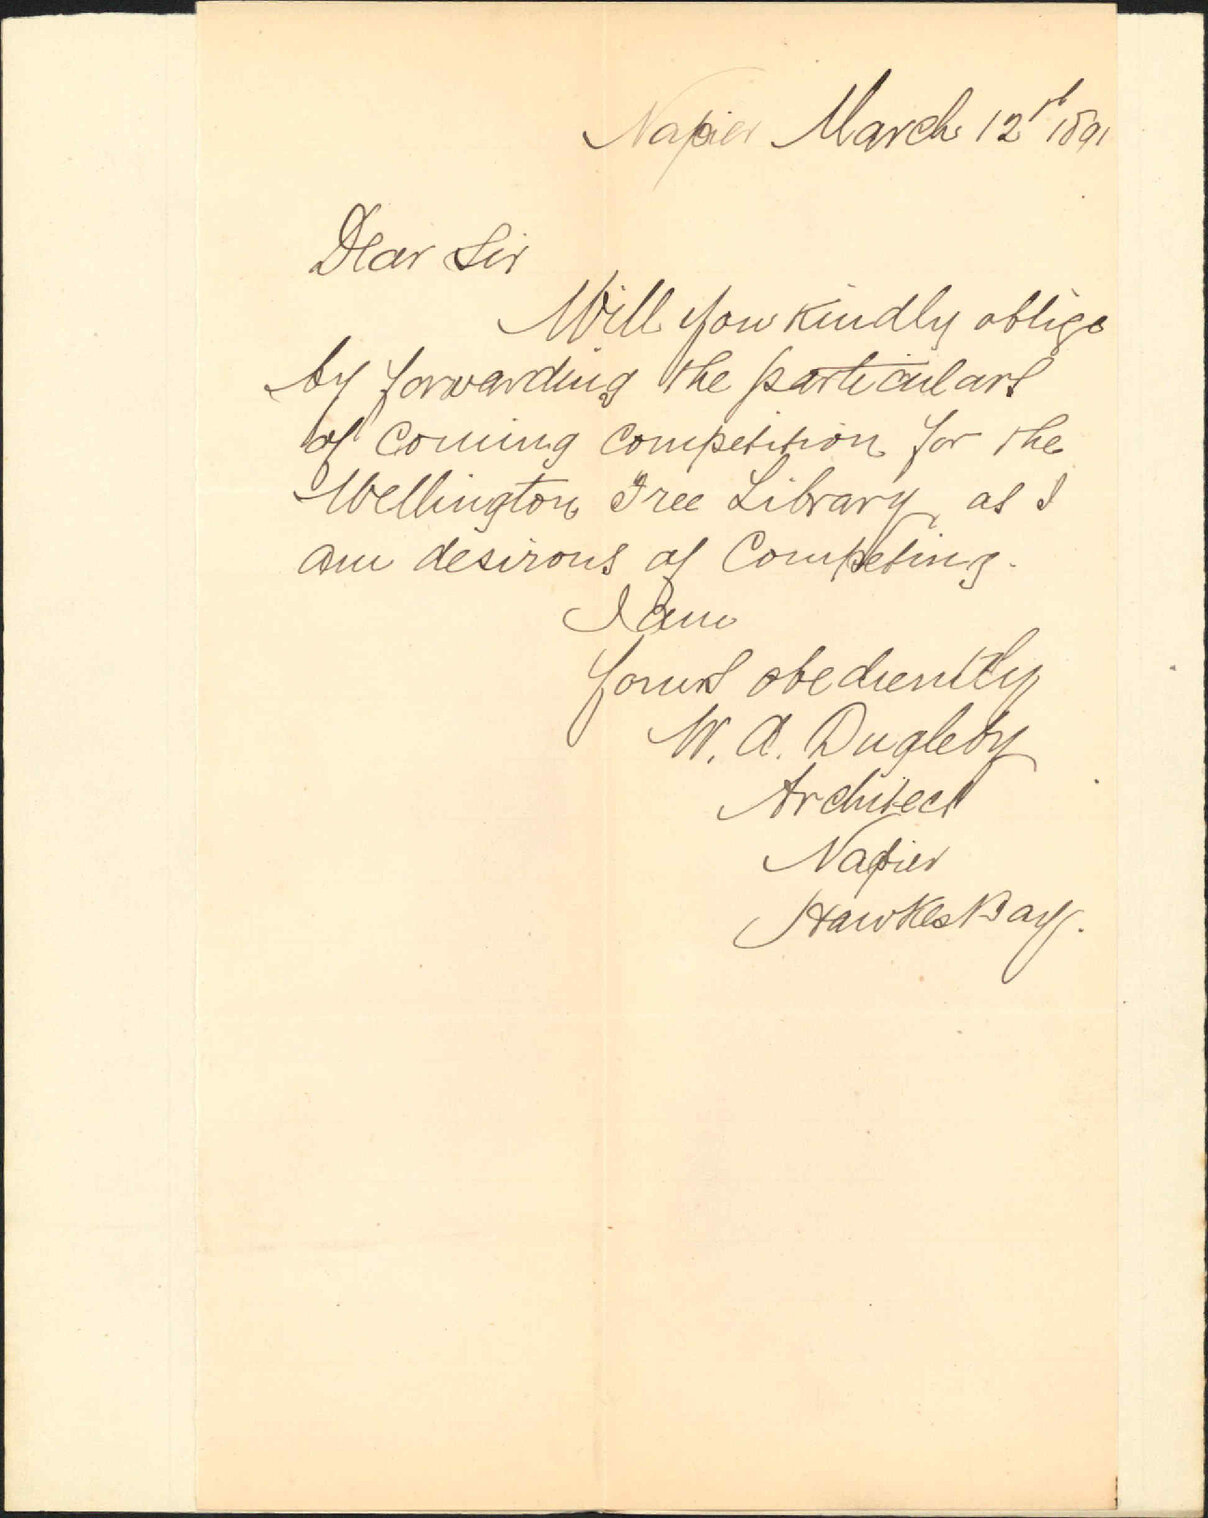 Napier March 12th 1891
Dear Sir
Will you kindly oblige
by forwarding the particulars
of coming competition for the
Wellington Free Library, as I
am desirous of Competing.
I am
Yours obediently
W. A. Dugleby
Architect
Napier
Hawkes Bay.